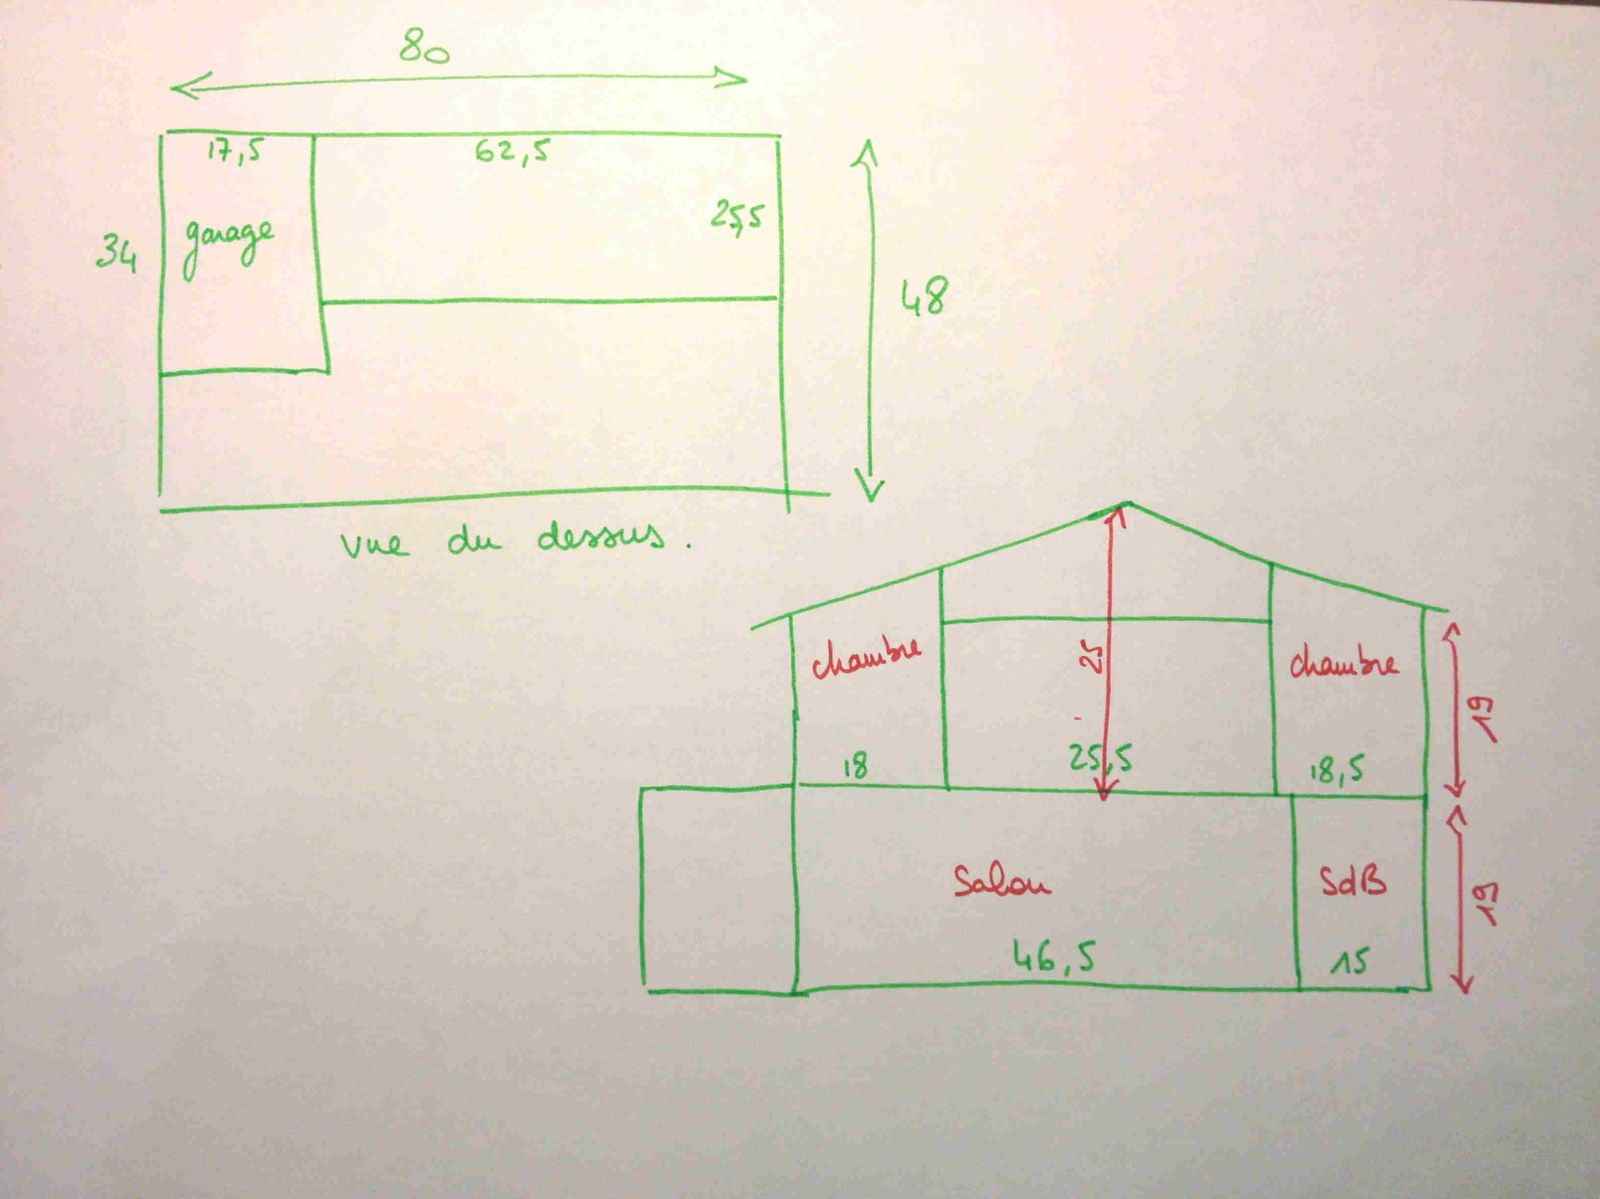 80
17,5
62,5
25,5
34
garage
48
vue du dessus.
chambre
25
chambre
19
18
25,5
18,5
Salon
SdB
19
46,5
15